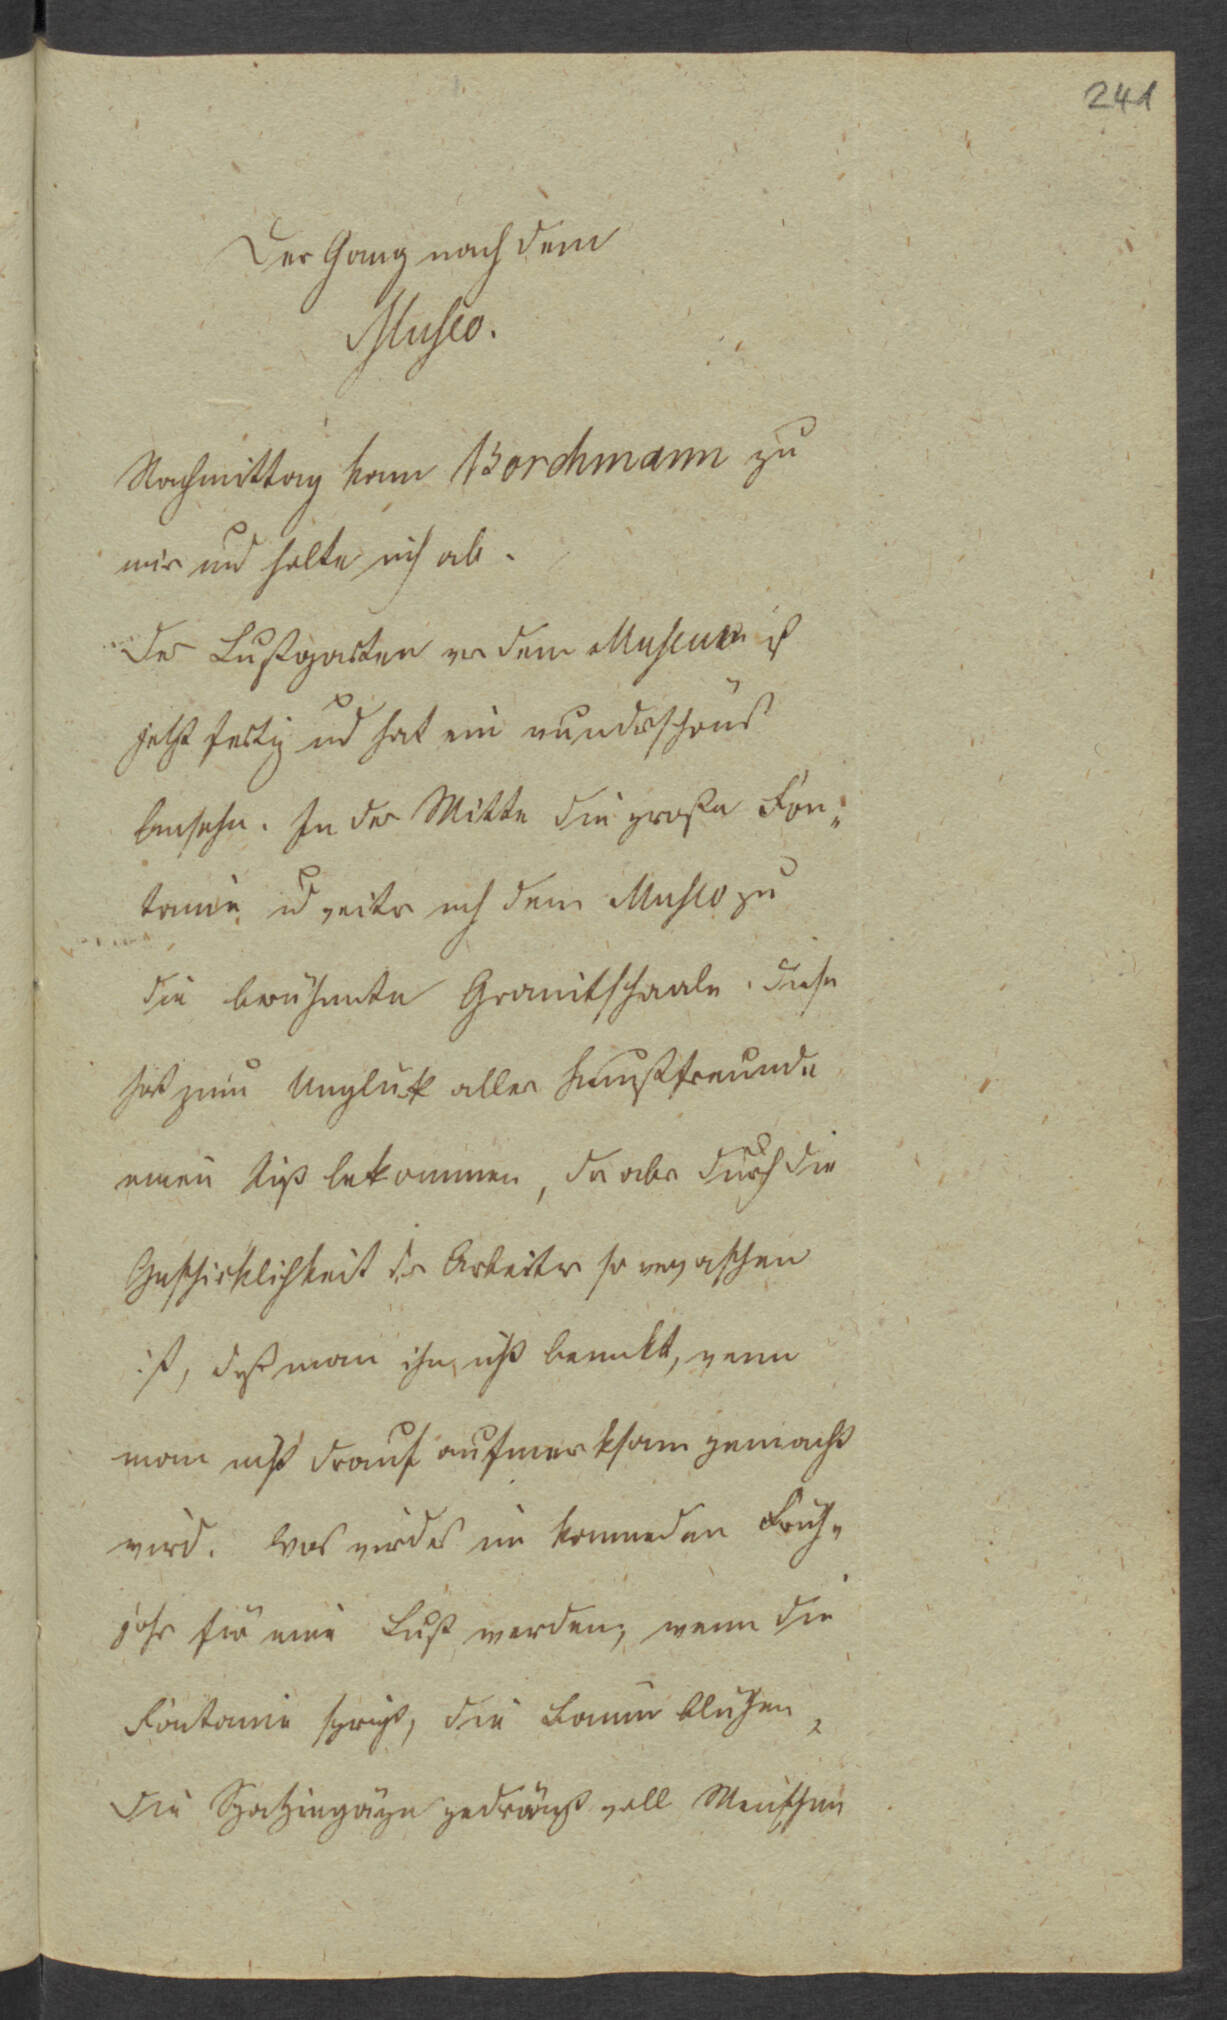 241
Der Gang nach dem
Museo.
Nachmittag kam Borchmann zu
mir und holte mich ab.
Der Lustgarten vor dem Museum ist
jetzt fertig und hat ein wunderschönes
Ansehn. In der Mitte die große Fon-
taine und weiter nach dem Museo zu
die berühmte Granitschaale. Diese
hat zum Ungluk aller Kunstfreunde
einen Riß bekommen, der aber durch die
Geschicklichkeit der Arbeiter so verwaschen
ist, daß man ihn nicht bemerkt, wenn
man nicht drauf aufmerksam gemacht
wird. Was wird es im kommenden Früh-
jahr für eine Lust werden, wenn die
Fontaine springt, die Bäume blühen,
die Spatziergänge gedrängt voll Menschen